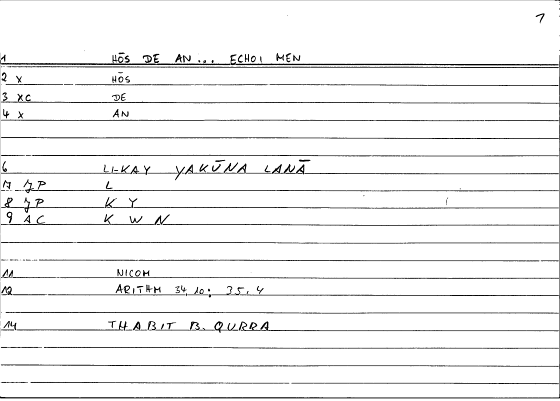 7
1 HŌS DE AN... ECHOI MEN
2 X HŌS
3 XC DE
4 X AN
6 LI-KAY YAKŪNA LANĀ
7 JP L
8 JP K Y
9 AC K W N
11 NICOM
12 ARITHM 34,10; 35,4
14 THABIT B. QURRA